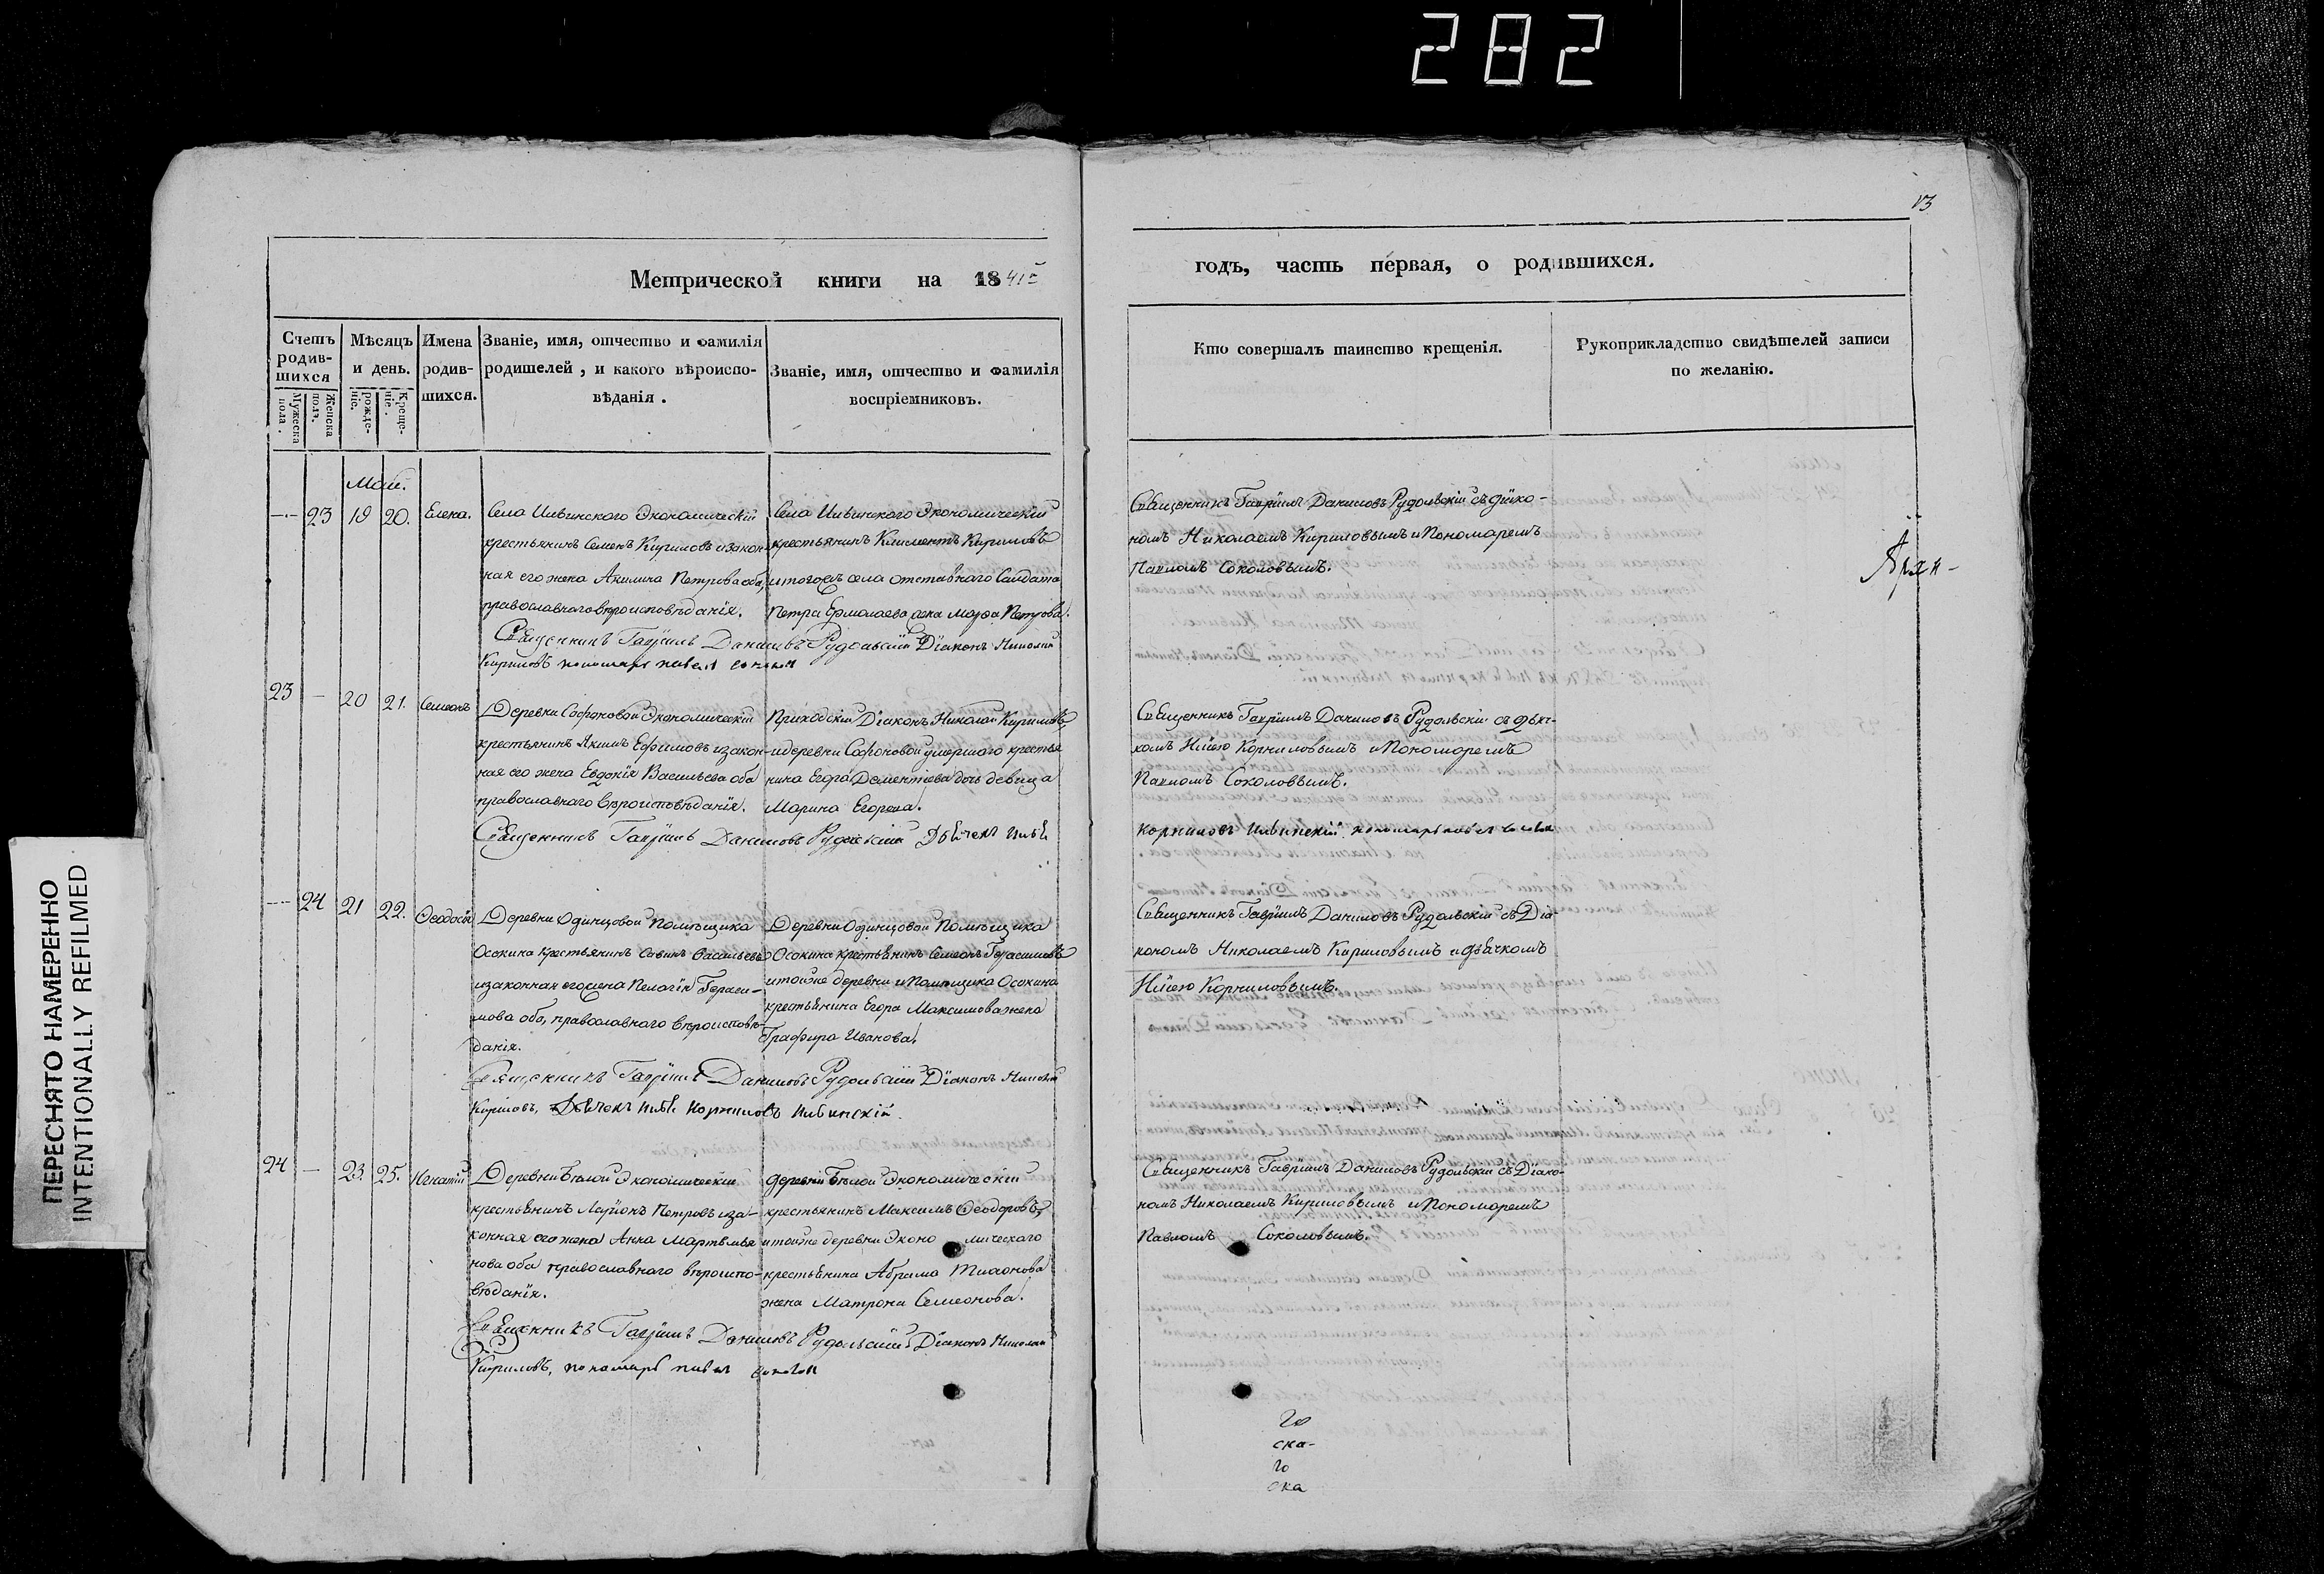 282
ПЕРЕСНЯТО НАМЕРЕННО
INTENTIONALLY REFILMED
Метрической книги на 1841й
Счетъ родившихся
Мужеска пола.
Женска пола.
Мѣсяцъ и день.
рожденіе.
Крещеніе.
Имена родившихся.
Званіе, имя, отчество и фамилія
родителей, и какого вѣроиспо-
вѣданія.
Званіе, имя, отчество и фамилія
воспріемниковъ.
Май.
-- 23 19 20. Елена.
Села Ильинского Экономическій
крестьянинъ Семенъ Кириловъ и закон-
ная его жена Акилина Петрова оба,
православнаго вѣроисповѣданія.
Села Ильинского Экономическій
крестьянинъ Климентъ Кириловъ
и тогожъ села отставнаго Салдата
Петра Ермолаева жена Марѳа Петрова.
Священникъ Гавріилъ Даниловъ Рудольскій Діаконъ Николай
Кириловъ пономарь Павел
23 — 20 21. Симеонъ
Деревни Софоновой Экономическій
крестьянинъ Якимъ Ефимовъ и закон-
ная его жена Евдокія Васильева оба
православнаго вѣроисповѣданія.
Приходскій Діаконъ Николай Кириловъ,
и деревни Софоновой умершаго крестья
нина Егора Дементіева дочь девица
Марина Егорова.
Священникъ Гавріилъ Даниловъ Рудольскій Дьячекъ Илья
-- 24 21 22. Ѳеодосія
Деревни Одинцовой Помѣщика
Осокина Крестьянинъ Савинъ Васильевъ
и законная его жена Пелагія Гераси-
мова оба, православнаго вѣроисповѣ-
данія.
Деревни Одинцовой Помѣщика
Осокина крестьянинъ Семенъ Герасимовъ
и тойже деревни и Помѣщика Осокина
крестьянина Егора Максимова жена
Графира Иванова.
Священникъ Гавріилъ Даниловъ Рудольскій Діаконъ Николай
Кириловъ, Дьячекъ Илья Корниловъ Ильинскій.
24 — 23. 25. Игнатій
Деревни Бѣлой Экономическій
крестьянинъ Ларіонъ Петровъ и за-
конная его жена Анна Мартемья
нова оба православнаго вѣроиспо-
вѣданія.
деревни Бѣлой Экономическій
крестьянинъ Максимъ Ѳеодоровъ,
и тойже деревни Экономическаго
крестьянина Абрама
жена Матрона Семенова.
Священникъ Гавріилъ Даниловъ Рудольскій Діаконъ Николай
Кириловъ, пономарь Павел
13
годъ, часть первая, о родившихся.
Кто совершалъ таинство крещенія.
Рукоприкладство свидѣтелей записи
по желанію.
Священникъ Гавріилъ Даниловъ Рудольскій съ діако-
номъ Николаемъ Кириловымъ и Пономаремъ
Павломъ Соколовымъ.
Священникъ Гавріилъ Даниловъ Рудольскій съ дьяч-
комъ Ильею Корниловымъ и Пономоремъ
Павломъ Соколовымъ.
Корниловъ Ильинскій пономарь Павел
Священникъ Гавріилъ Даниловъ Рудольскій съ Діа-
кономъ Николаемъ Кириловымъ и дьячкомъ
Ильею Корниловымъ.
Священникъ Гавріилъ Даниловъ Рудольскій съ Діако-
номъ Николаемъ Кириловымъ и Пономоремъ
Павломъ Соколовымъ.
го
ска-
го
ска